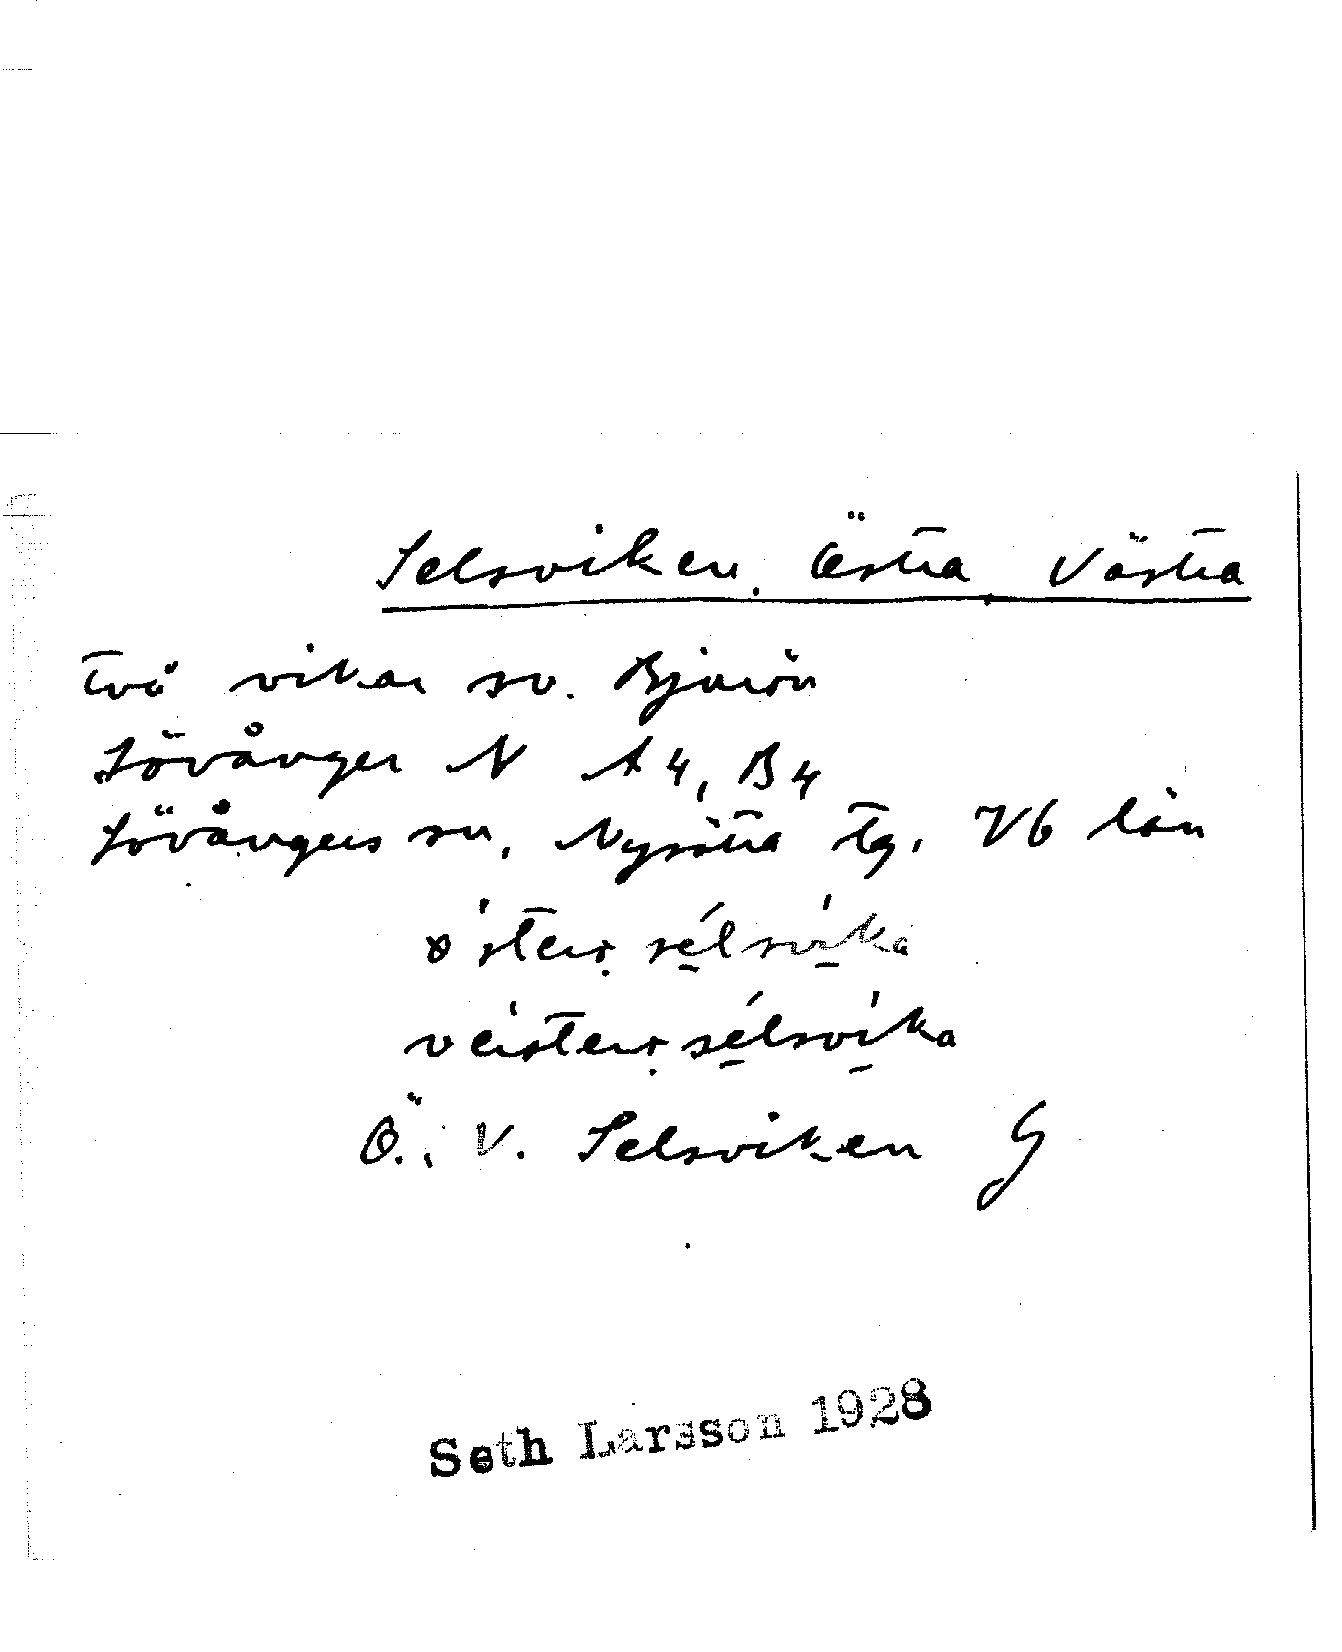 Selsviken, Östra, Västra
Två vikar sv. Bjurön
Lövånger N A4, B4
Lövångers sn, Nysätra tg. Vb län
ö'sterṣ sélsvika
veisterṣ sélsvika
Ö., V. Selsviken G
Seth Larsson 1928